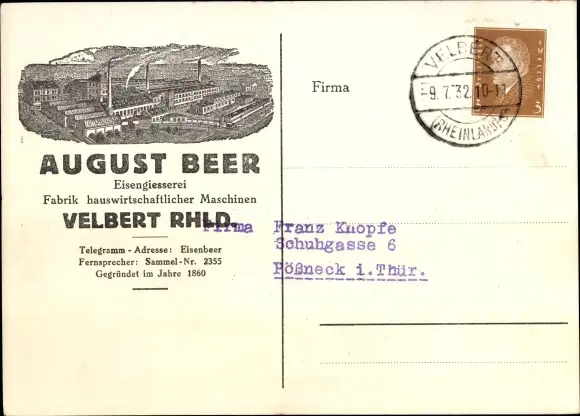 AUGUST BEER
Eisengiesserei
Fabrik hauswirtschaftlicher Maschinen
VELBERT RHLD.
Telegramm - Adresse: Eisenbeer
Fernsprecher: Sammel-Nr. 2355
Gegründet im Jahre 1860
Firma
VELBERT
9.7.32.10-11
(RHEINLAND)
3
Firma Franz Knopfe
Schuhgasse 6
Pößneck i.Thür.